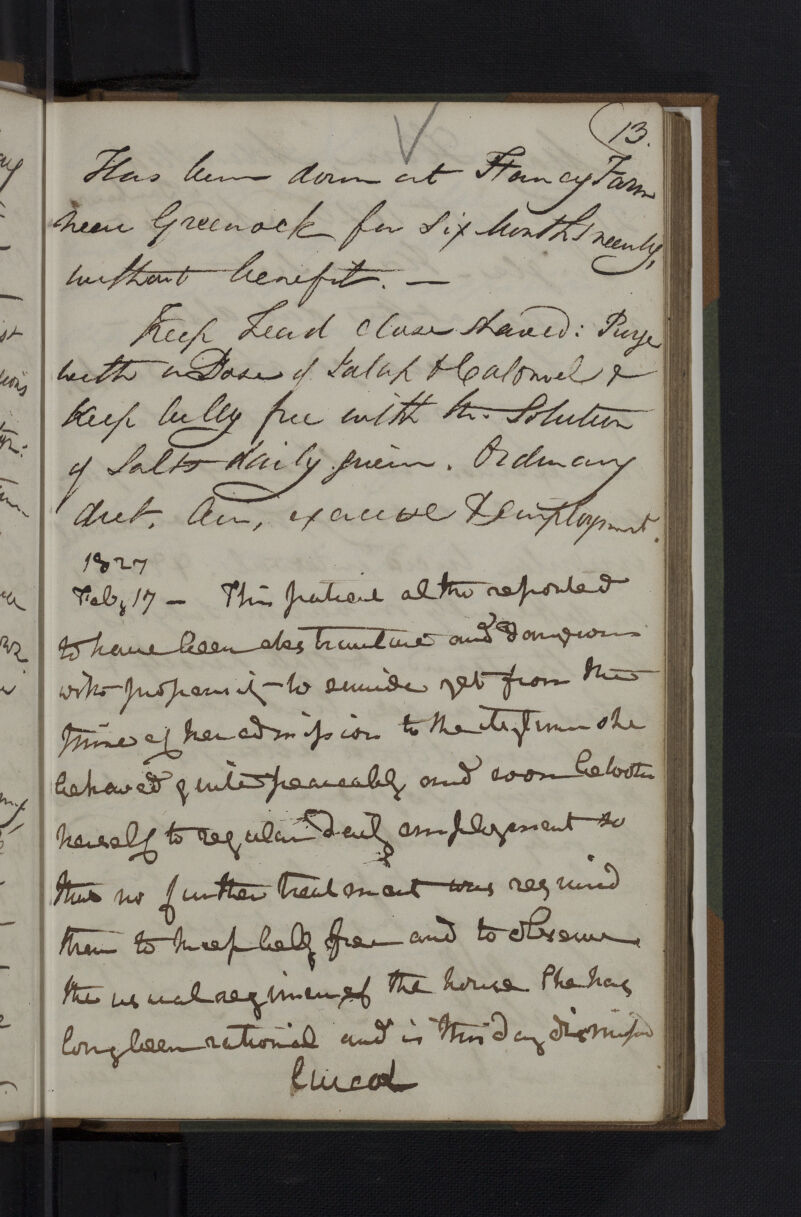 13.
Has been down at Fancy Farm
near Greenock for Six Months nearly,
without benefit. —
Keep Head close shaved: Purge
with a Dose of Jalap & Calomel &
Keep belly free with the Solution
of Salts daily given. Ordinary
diet, Air, exercise & employment.
1827
Feby 17 — This patient altho reported
to have been obstructive and dangerous
with propensity to suicide yet from the
time of her admission to the Asylum she
behaved quite peaceably and soon betook
herself to regular daily employment so
that no further treatment was required
than to keep belly free and to observe
the usual regimen of the house She has
long been rational and is this day dismissed
Cured